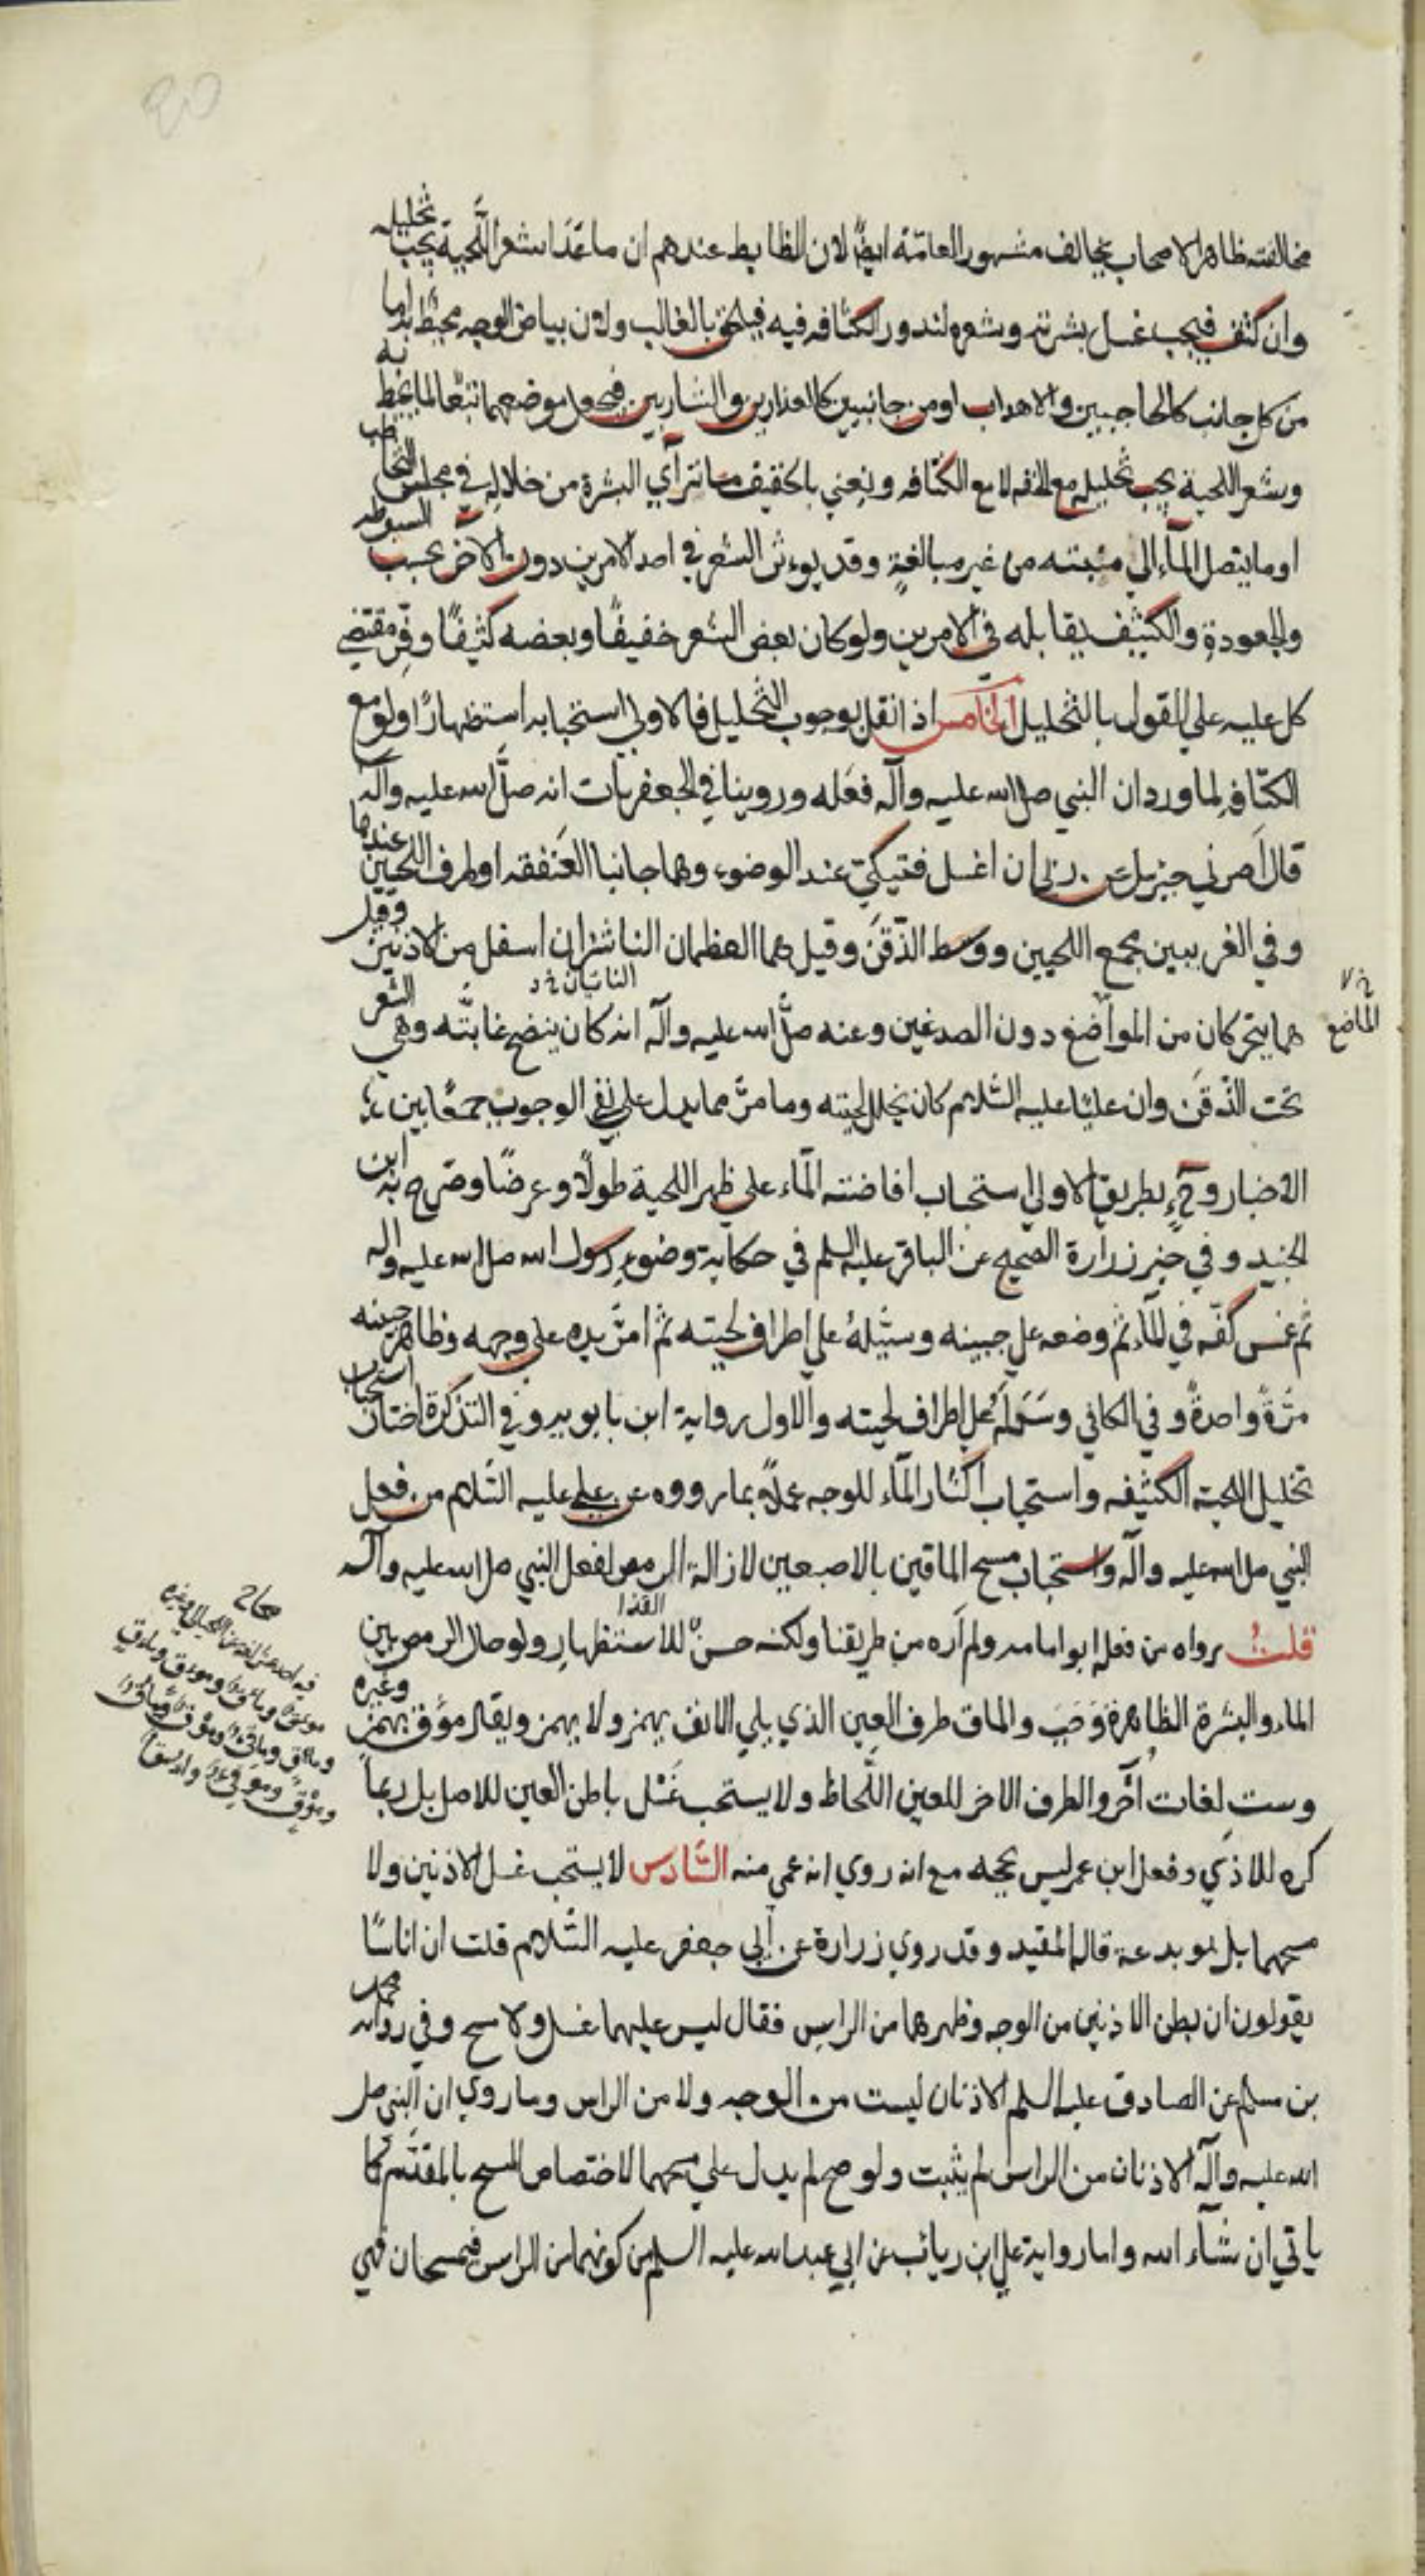 مخالفته ظاهر الاصحاب يخالف مشهور العامّة ايضًا لان الظابط عندهم ان ما عَدَا شعر اللّحية يجب تخليله
وان كثف فيجب غسل بشرته وشعره لندور الكثافه فيه فيلحق بالغالب ولان بياض الوجه محيط به اما
من كل جانب كالحاجبين والاهداب او من جانبين كالعذارين والشاربين فيجعل موضعهما تبعًا لما يحيط به
وشعر اللحية يجب تخليله مع الخفه لا مع الكثافه ونعني بالخفيف ما تتراآي البشرة من خلاله في مجلس التخاطب
او ما يتصل المآء الي منبته من غير مبالغةٍ وقد يوءثر الشعر في احد الامرين دون الاخر بحسب السبوطه
والجعودةِ والكثيف يقابله في الامرين ولو كان بعض الشعر خفيفًا وبعضه كثيفًا وفّر مقتضي
كل عليه علي القول بالتخليل الخامس اذا لم نقل بوجوب التخليل فالاولي استحبابه استظهارًا ولو مع
الكثافه لما ورد ان النبي صلى الله عليه وآله فعَله وروينا في الجعفريات انه صلَّى الله عليه وآله
قال أمرني جبرئيل عن ربي ان اغسل فنيكيّ عند الوضوء وهما جانبا العَنفقه او طرف اللحيين عندها
وفي الغريبين مجمع اللحيين ووسط الذّقن وقيل هما العظمان الناشزان اسفل من الاذنين وقيل
الناتيان خ د
هما يتحركان من المواضغ دون الصدغين وعنه صلَّى الله عليه وآله انه كان ينضح غابتّه وهي الشعر
خ ل
الماضغ
تحت الذّقن وان عليًا عليه السّلام كان يخلل لحيته وما مرَّ مما يدل علي نفي الوجوب جمعًا بين
الاخبار وحٍ بطريق الاولي استحباب افاضته المآء علي ظهر اللحية طولًا وعرضًا وصَرح به ابن
الجنيد وفي خبر زرارة الصّحيح عن الباقر عليه السلم في حكاية وضوء رسول الله صلى الله عليه واله
ثم غمس كفّه في المآء ثم وضعه على جبينه وسَيَّلهُ علي اطراف لحيته ثم امرّ يده علي وجهه وظاهر جبينه
مَرّةً واحدةً وفي الكافي وسَدَله على اطراف لحيته والاول رواية ابن بابويه وفي التذكرة اختار استحباب
تخليل اللحية الكثيفه واستحباب اكثار المآء للوجه عملًا بما رووه عن علي عليه السّلام من فعل
النبي صلى الله عليه وآله واستحباب مسح الماقين بالاصبعين لازالة الرمص لفعل النبي صلى الله عليه وآله
القذا
قلتُ رواه من فعله ابو امامه ولم أره من طريقنا ولكنه حسنٌ للاستظهار ولو حال الرمص بين
الماء والبشرة الظاهرة وَجَبَ والماق طرف العين الذي يلي الانف يهمز ولا يهمز ويقال مؤق بهمز وغيره
وست لغات أُخر والطرف الاخر للعين اللَّحاظ ولا يستحب غَسْل باطن العين للاصل بل ربما
كره للاذي وفعل ابن عمر ليس بحجه مع انه روي انه عمي منه السّادس لا يستحب غسل الاذنين ولا
مسحهما بل هو بدعة قاله المفيد وقد روي زرارة عن أبي جعفر عليه السّلام قلت ان اناسًا
يقولون ان بطن الاذنين من الوجه وظهرهما من الراس فقال ليس عليهما غسل ولا مسح وفي رواية محمد
بن مسلم عن الصادق عليه السلم الاذنان ليست من الوجه ولا من الراس وما روي ان النبي صلى
الله عليه وآله الاذنان من الراس لم يثبت ولو صح لم يدل علي مسحهما لاختصاص المسح بالمقدّم كما
ياتي ان شآء الله واما رواية علي ابن رياب عن ابي عبد الله عليه السلم من كونهما من الراس فيمسحان فهي